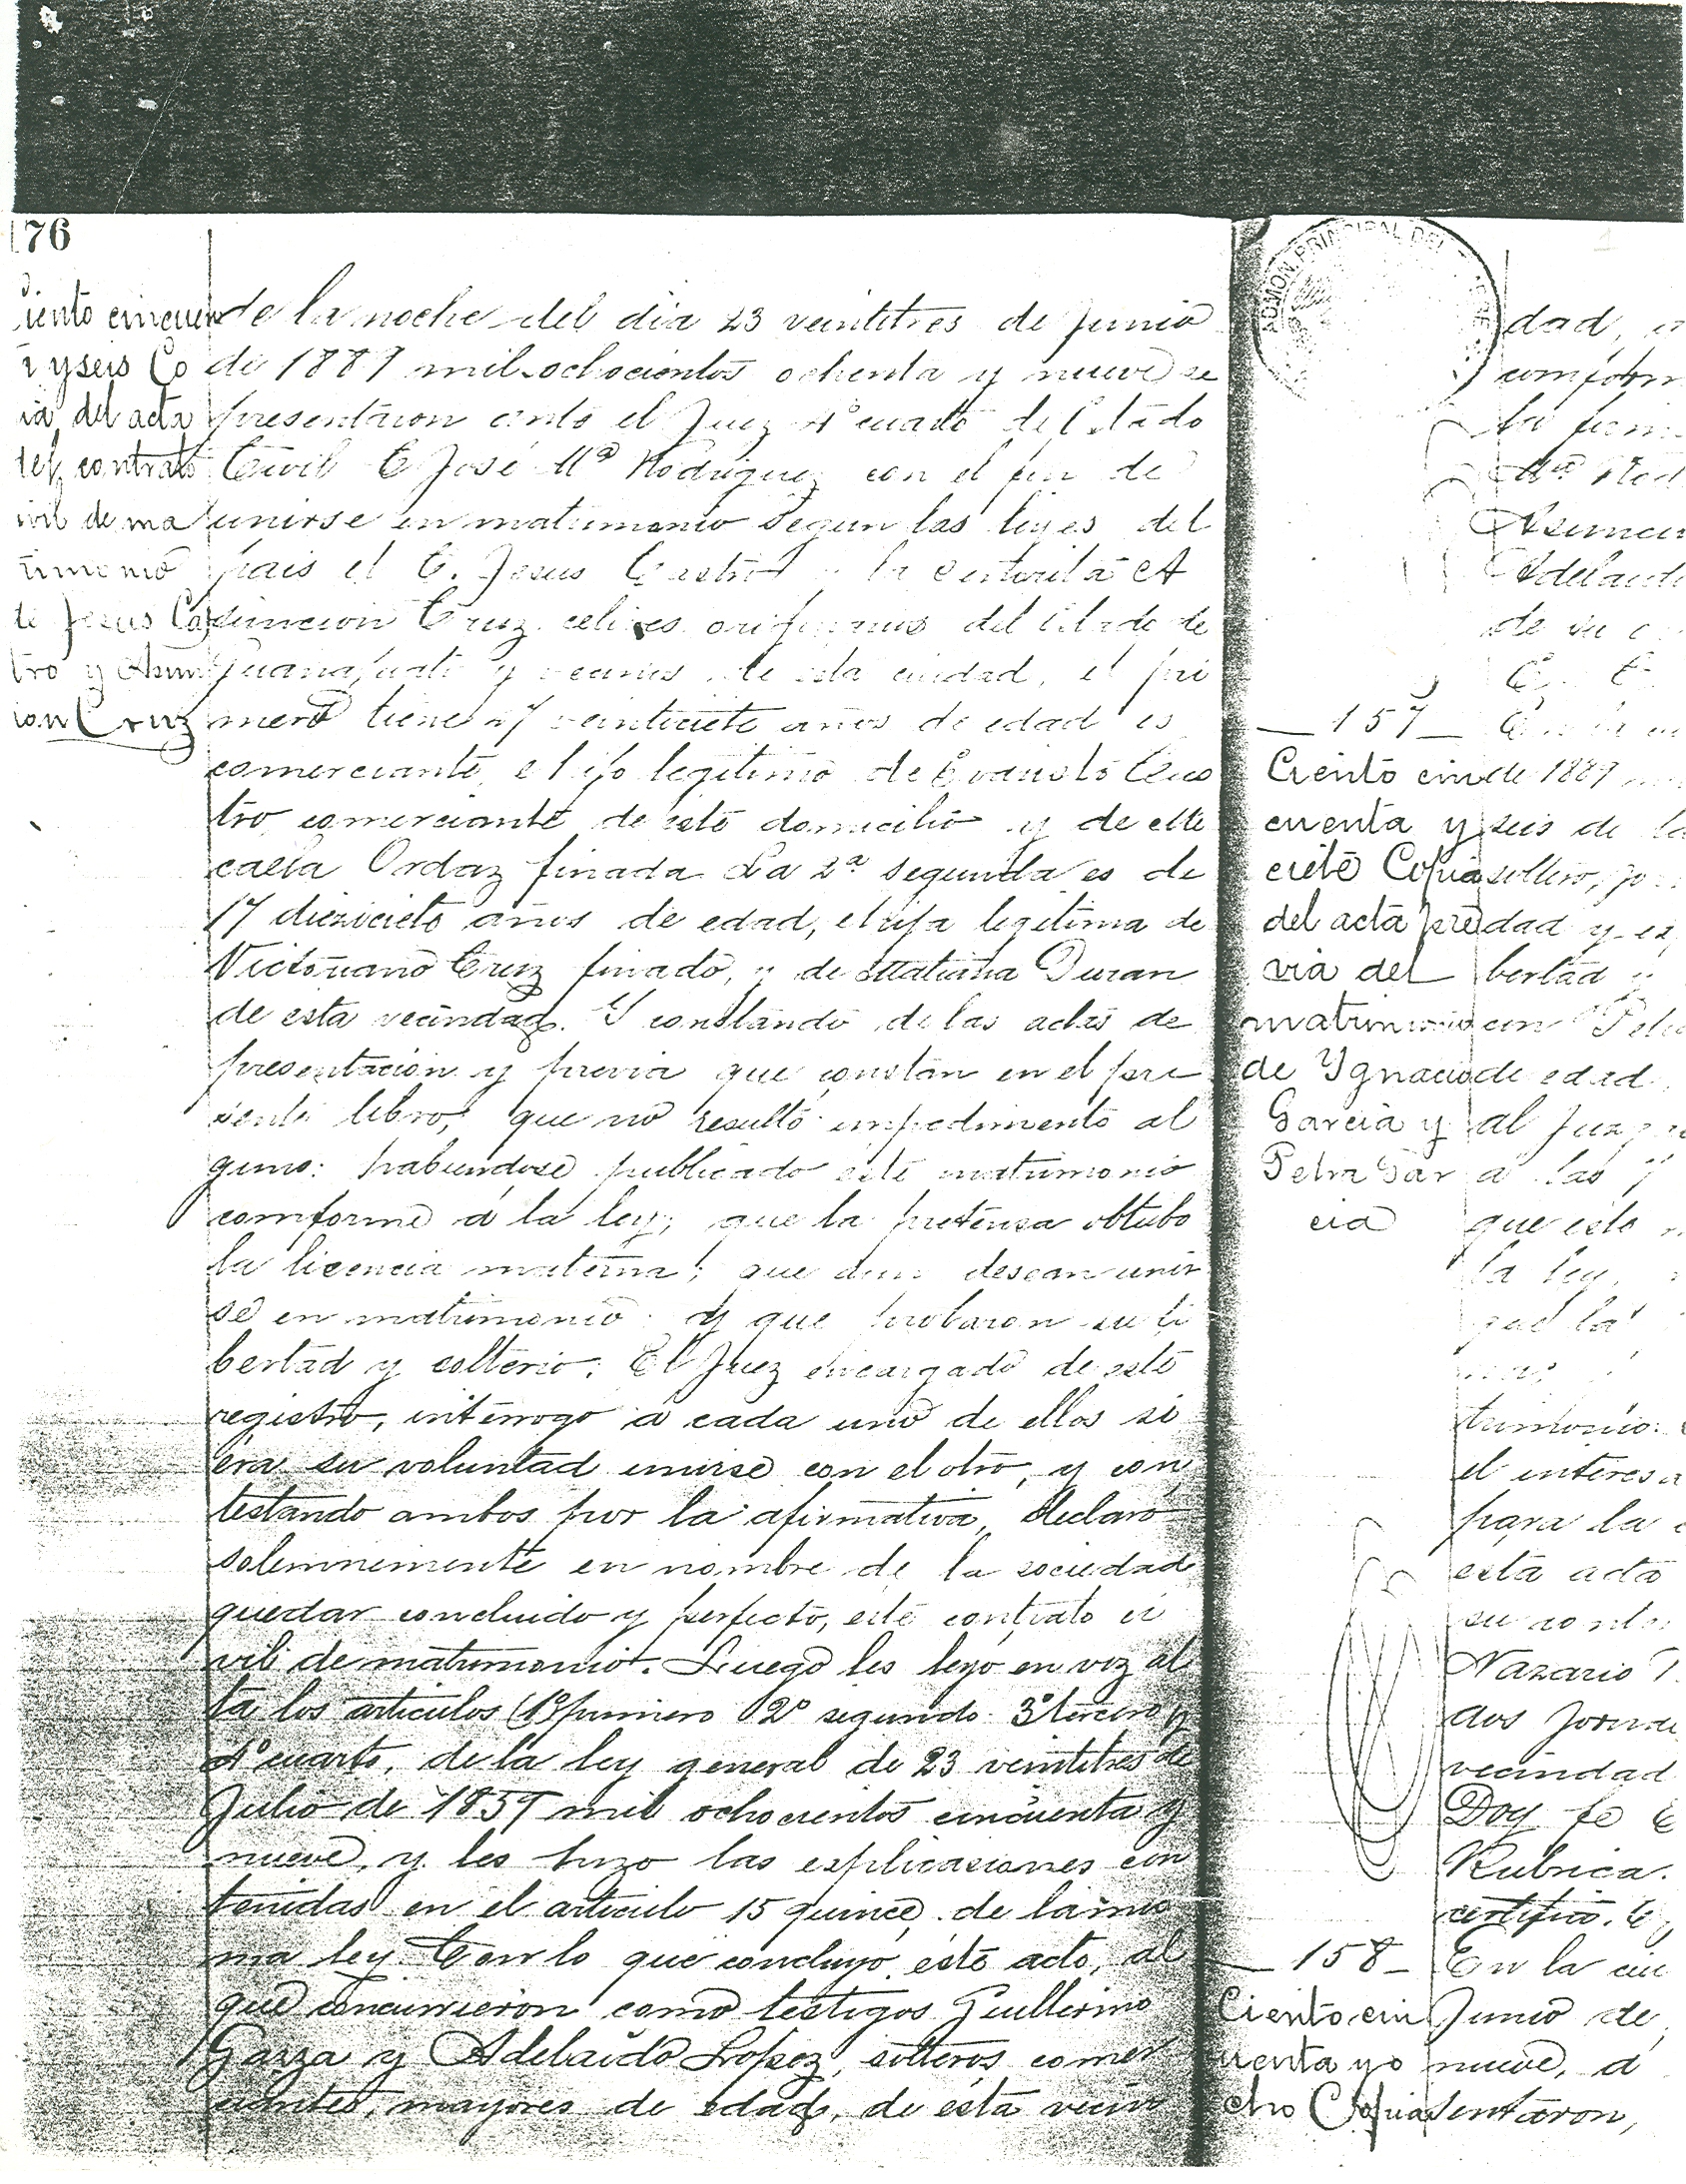 76
iento cincuen
a y seis Co
ia del acta
del contrato
ivil de ma
trimonio
de Jesus Cas
tro y Asun
ion Cruz
de la noche del dia 23 veintitres de Junio
de 1889 mil ochocientos ochenta y nueve se
presentaron ante el Juez 4º cuarto del Estado
Civil C José Mª Rodriguez con el fin de
unirse en matrimonio segun las leyes del
pais el C. Jesus Castro y la Señorita A
suncion Cruz celibes originarios del Estado de
Guanajuato y vecinos de esta ciudad, el pri
mero tiene 27 veinticiete años de edad es
comerciante, e hijo legitimo de Evaristo Cas
tro comerciante de este domicilio y de Mi
caela Ordaz finada La 2ª segunda es de
17 dieziciete años de edad, e hija legitima de
Victoriano Cruz finado, y de Matiana Duran
de esta vecindad. Y constando de las actas de
presentacion y previa que constan en el pre
sente libro, que no resultó impedimento al
guno: habiendose publicado este matrimonio
comforme á la ley; que la pretensa obtubo
la licencia materna; que desean unir
se en matrimonio: y que probaron su li
bertad y solterio. El Juez encargado de este
registro, interrogo á cada uno de ellos si
era su voluntad unirse con el otro, y con
testando ambos por la afirmativa, declaró
solemnemente en nombre de la sociedad
quedar concluido y perfecto, este contrato ci
vil de matrimonio. Luego les leyó en voz al
ta los articulos 1º primero 2º segundo 3º tercero y
4º cuarto, de la ley general de 23 veintitres de
Julio de 1859 mil ochocientos cincuenta y
nueve, y les hizo las esplicasiones con
tenidas en el articulo 15 quince, de la mis
ma ley Con lo que concluyó este acto, al
que concurrieron como testigos Guillermo
Garza y Adelaido Lopez, solteros, comer
ciantes, mayores de edad, de esta vecin
ADMON. PRINCIPAL DEL
dad, 
comform
la firm
Mª Rod
Asuncion
Adelaido
de su
157
Ciento cin
cuenta y
ciete Copia
del acta pre
via del
matrimonio
de Ygnacio
Garcia y
Petra Gar
cia
de 1889
seis de la
soltero,
dad y es
bertad y
con Pet
de edad
al Juzg
a las 7
que este
la ley,
que la
trimonio:
el interesa
para la
esta acta
su
Nazario
dos Jorna
vecindad
Doy fe
Rubrica.
certifico.
158
Ciento cin
cuenta y o
cho Copia
En la ciu
Junio de
nueve, á
sentaron,